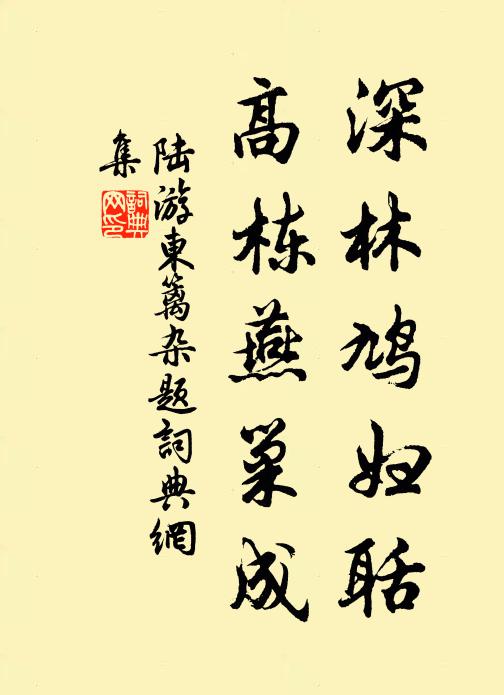 深林鳩妇聒
高栋燕巢成
陆游東籬杂题詞典網
集
詞典
网印